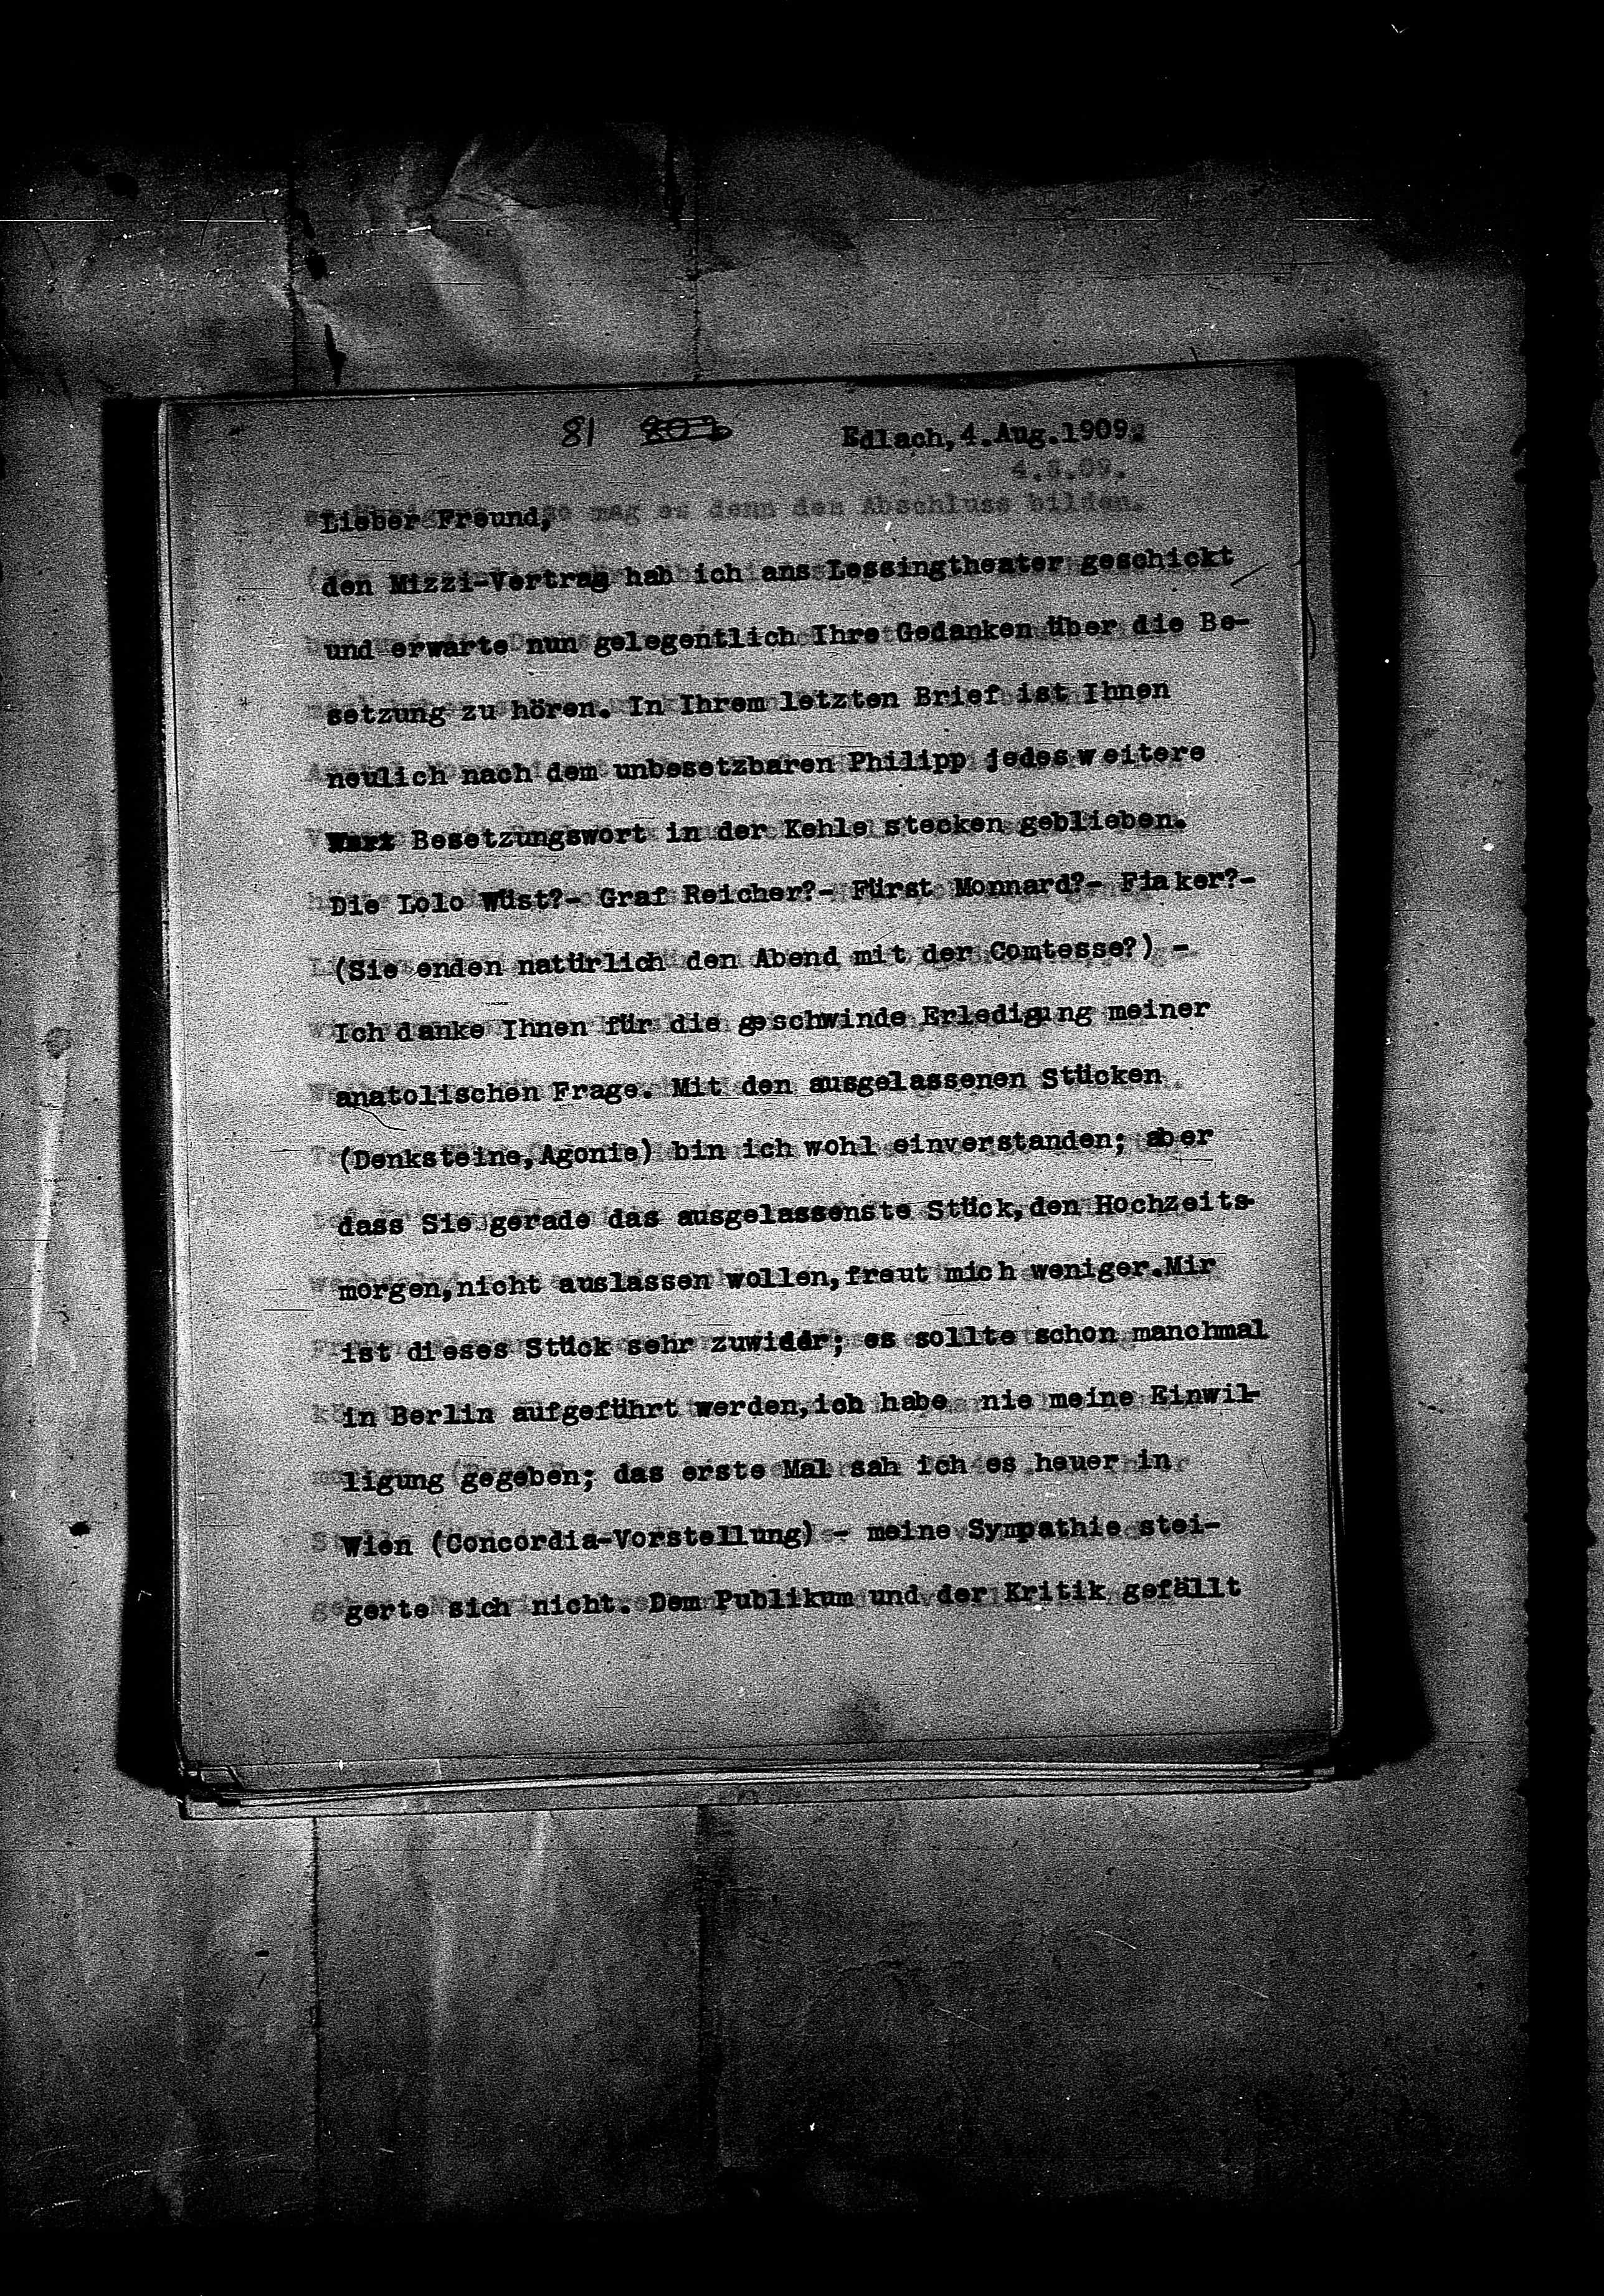 81 Edlach,4.Aug.1909.
Lieber Freund,
den Mizzi-Vertrag hab ich ans Lessingtheater geschickt
und erwarte nun gelegentlich Ihre Gedanken über die Be-
setzung zu hören. In Ihrem letzten Brief ist Ihnen
neulich nach dem unbesetzbaren Philipp jedes weitere
Besetzungswort in der Kehle stecken geblieben.
Die Lolo Wüst?- Graf Reicher?- Fürst Monnard?- Fiaker?-
(Sie enden natürlich den Abend mit der Comtesse?) -
Ich danke Ihnen für die geschwinde Erledigung meiner
anatolischen Frage. Mit den ausgelassenen Stücken
(Denksteine,Agonie) bin ich wohl einverstanden; aber
dass Sie gerade das ausgelassenste Stück,den Hochzeits-
morgen,nicht auslassen wollen,freut mich weniger.Mir
ist dieses Stück sehr zuwider; es sollte schon manchmal
in Berlin aufgeführt werden,ich habe nie meine Einwil-
ligung gegeben; das erste Mal sah ich es heuer in
Wien (Concordia-Vorstellung) - meine Sympathie stei-
gerte sich nicht. Dem Publikum und der Kritik gefällt